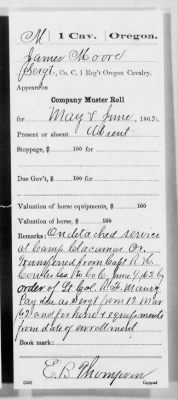 M | 1 Cav. | Oregon.
James Moore
Sergt, Co. C, 1 Reg't Oregon Cavalry.
Appears on
Company Muster Roll
for May & June, 1862.
Present or absent Absent
Stoppage, $ 100 for
Due Gov't, $ 100 for
Valuation of horse equipments, $ 100
Valuation of horse, $ 100
Remarks: On detached service
at Camp Clackamas Or.
Transferred from Capt R. H.
Co. C June 4, 162 by
order of Lt Col. R. F. Maury
Pay due as Sergt from 12 Mar
62 and for horse & equipments
from date of enrollment
Book mark:
E. B. Thompson
(358) Copyist.